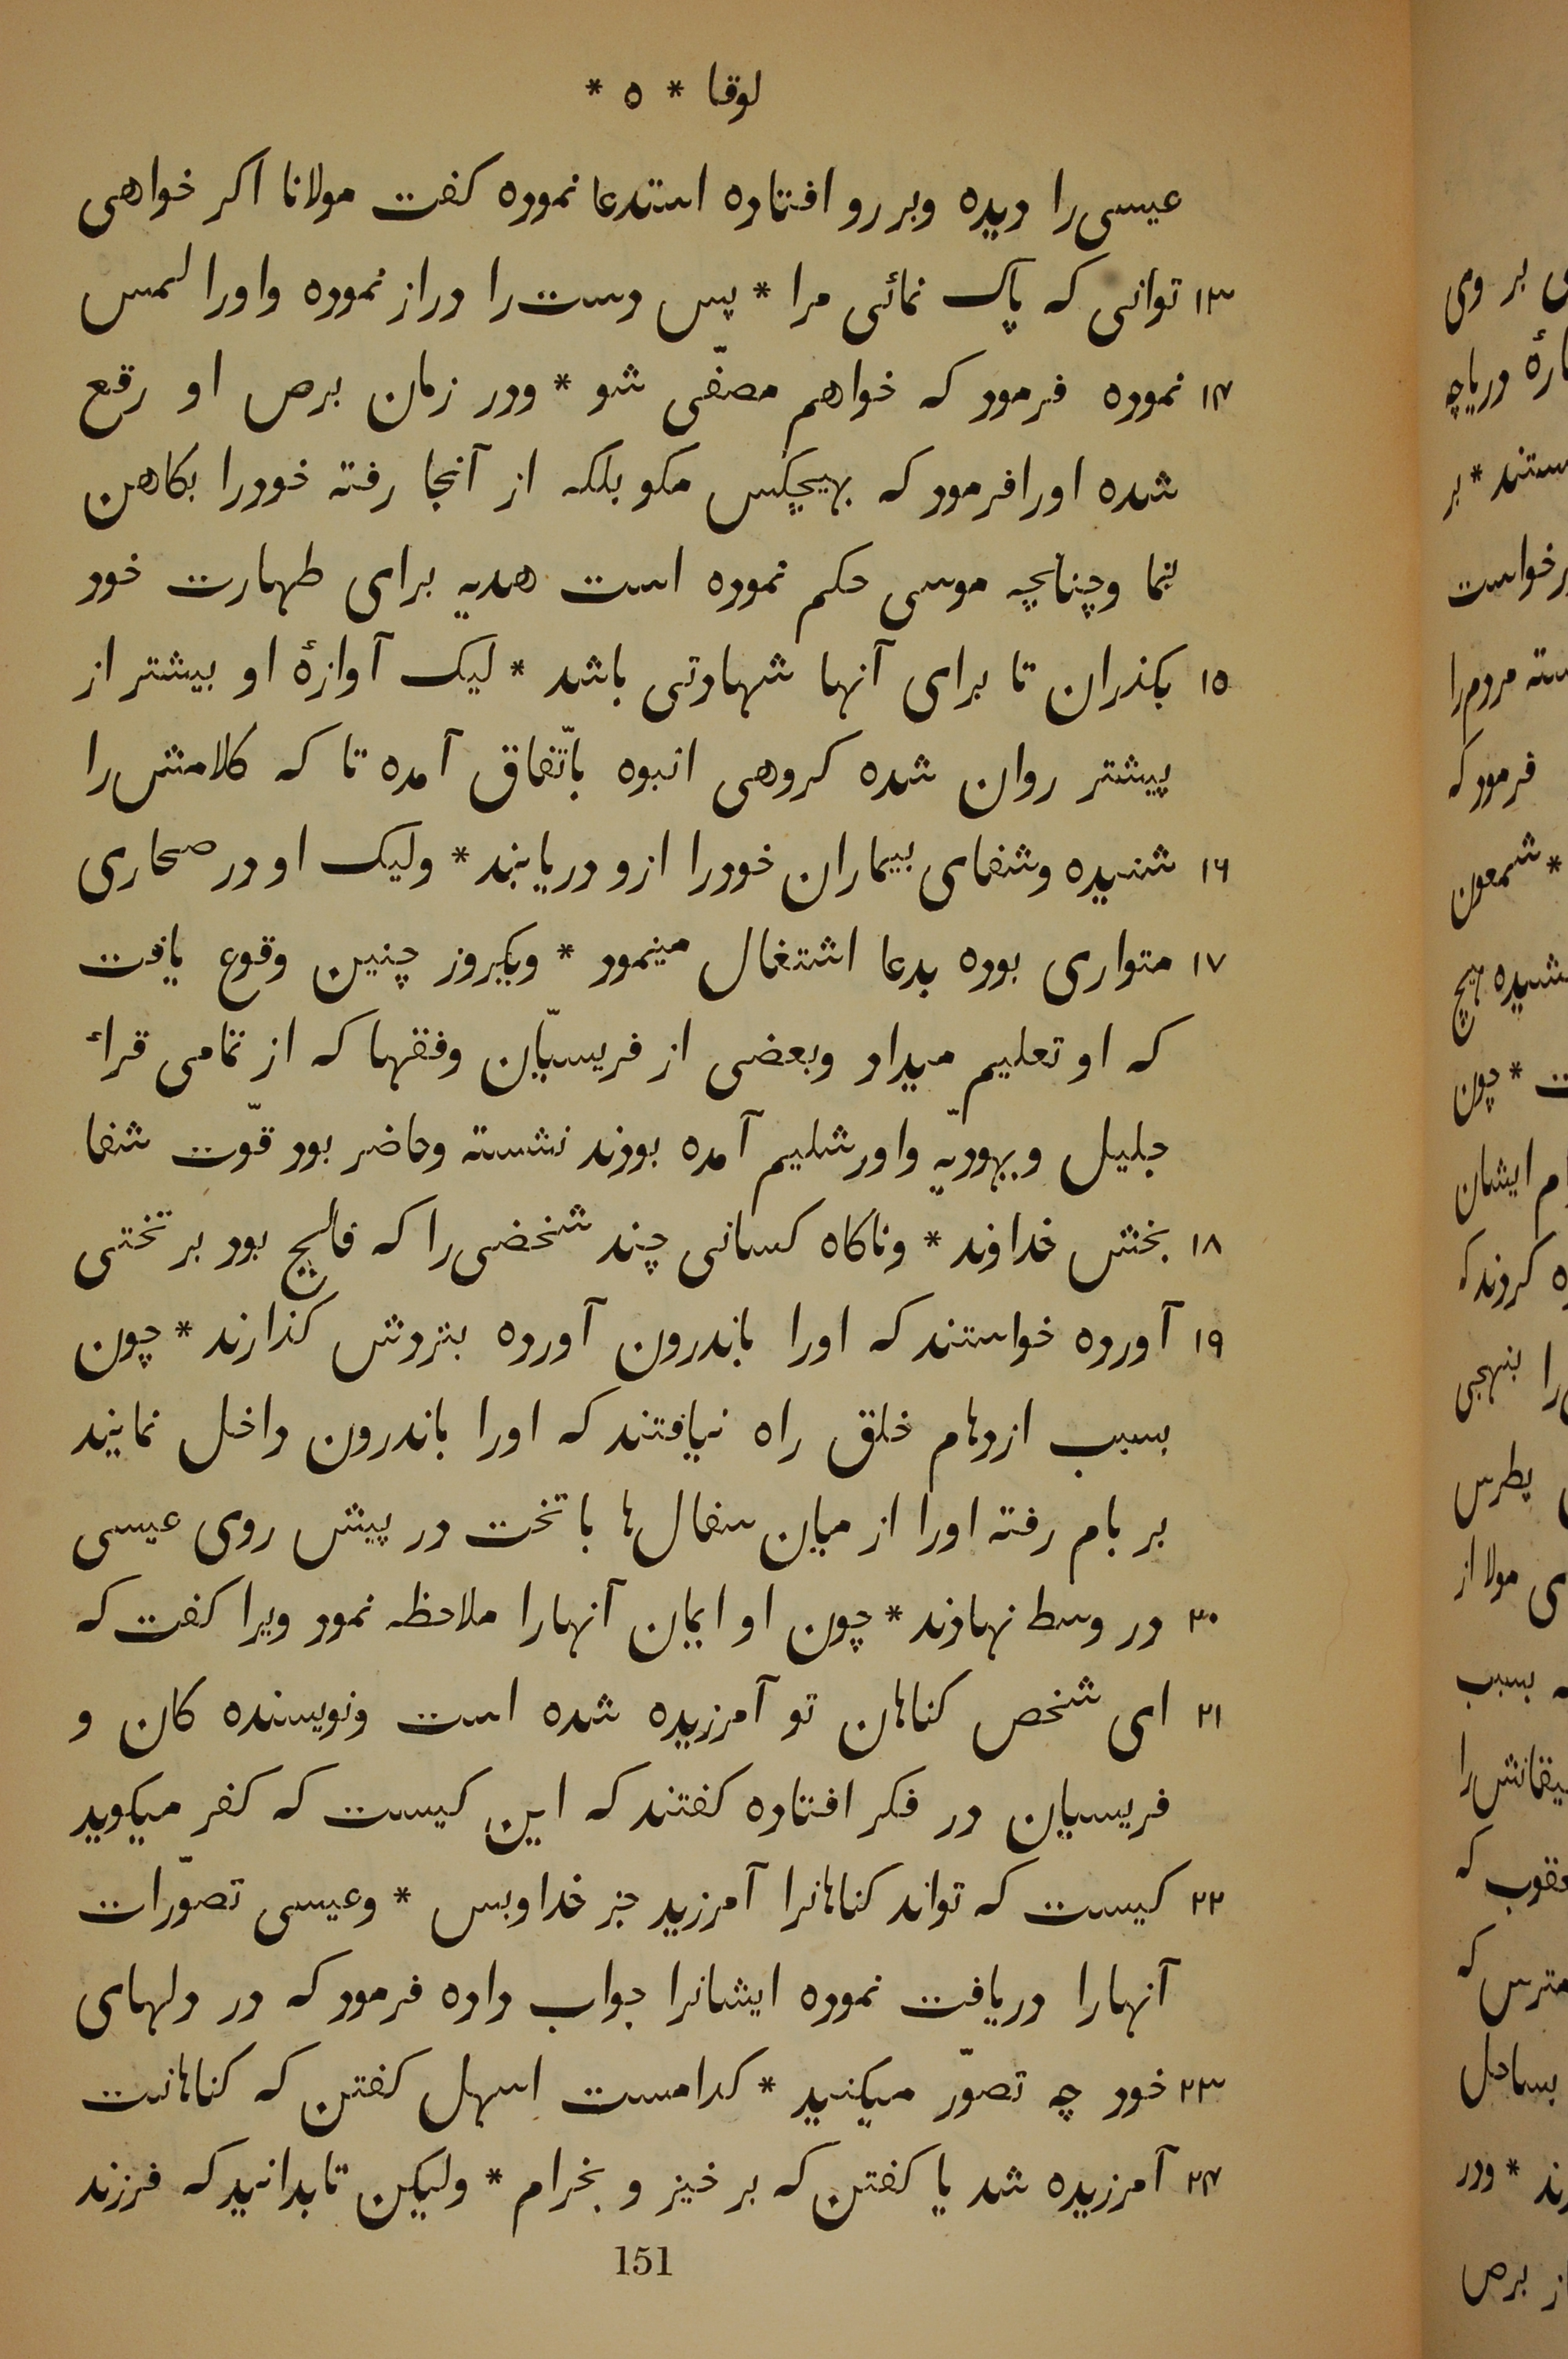 لوقا * ٥ *
عیسی را دیده وبر رو افتاده استدعا نموده کفت مولانا اکر خواهی
١٣ توانی که پاک نمائی مرا * پس دست را دراز نموده واورا لمس
١۴ نموده فرمود که خواهم مصفّی شو * ودر زمان برص او رفع
شده اورا فرمود که بهیچکس مکو بلکه از آنجا رفته خودرا بکاهن
بنما وچنانچه موسی حکم نموده است هدیه برای طهارت خود
١٥ بکذران تا برای آنها شهادتی باشد * لیک آوازهٔ او بیشتر از
پیشتر روان شده کروهی انبوه باتّفاق آمده تا که کلامش را
١٦ شنیده وشفای بیماران خودرا ازو دریابند * ولیک او در صحاری
١٧ متواری بوده بدعا اشتغال مینمود * ویکروز چنین وقوع یافت
که او تعلیم میداد وبعضی از فریسیّان وفقها که از تمامی قراء
جلیل ویهودیّه واورشلیم آمده بودند نشسته وحاضر بود قوّت شفا
١٨ بخش خداوند * وناکاه کسانی چند شخصی را که فالیج بود بر تختی
١٩ آورده خواستند که اورا باندرون آورده بنزدش کذارند * چون
بسبب ازدهام خلق راه نیافتند که اورا باندرون داخل نمایند
بر بام رفته اورا از میان سفال ها با تخت در پیش روی عیسی
٢٠ در وسط نهادند * چون او ایمان آنهارا ملاحظه نمود ویرا کفت که
٢١ ای شخص کناهان تو آمرزیده شده است ونویسنده کان و
فریسیان در فکر افتاده کفتند که این کیست که کفر میکوید
٢٢ کیست که تواند کناهانرا آمرزید جز خدا وبس * وعیسی تصوّرات
آنهارا دریافت نموده ایشانرا جواب داده فرمود که در دلهای
٢٣ خود چه تصوّر میکنید * کدامست اسهل کفتن که کناهانت
٢۴ آمرزیده شد یا کفتن که بر خیز و بخرام * ولیکن تا بدانید که فرزند
151
بر وی
دریاچه
* بر
مردم را
فرمود که
* شمعون
هیچ
* چون
ایشان
کردند که
را بنهجی
پطرس
مولا از
بسبب
که
بساحل
* ودر
برص